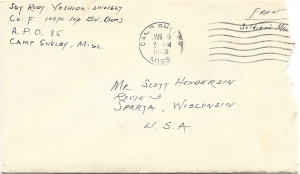 Sgt Roy Yoshioa
Co. F 100th Inf Bn. (Sep)
A.P.O. 85
Camp Shelby, Miss.
CAMP SHELBY
JAN 9
PM
1943
MISS.
Free
Soldier's Mail
Mr Scott Hendersin
Route
Sparta, Wisconsin
U.S.A